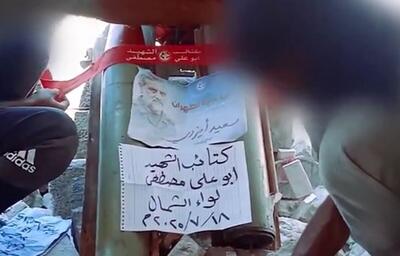 كتائب
الشهيد
ابو علي مصطفى
طهران
سعيد أيزدي
كتائب الشهيد
ابو علي مصطفى
لواء الشمال
١٨/٧/٢٠٢٥م
adidas